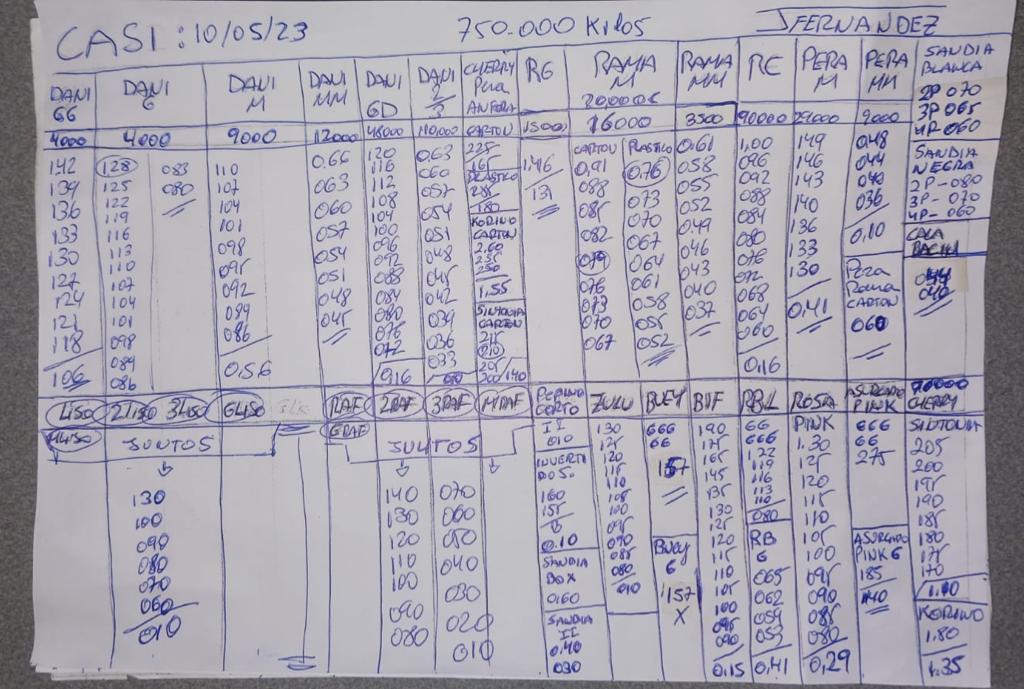 CASI : 10/05/23 750.000 Kilos JFERNANDEZ
DANI GG
4000
142
139
136
133
130
127
124
121
118
106
DANI G
4000
128 083
125 080
122
119
116
113
110
107
104
101
098
089
086
DANI M
9000
110
107
104
101
098
095
092
089
086
0.56
DANI MM
12000
0.66
063
060
057
054
051
048
045
DANI GD
48000
120
116
112
108
104
100
096
092
088
084
080
076
072
0.16
DANI
110,000
0,63
060
057
054
051
048
045
042
039
036
033
010
CHERRY Pera
ANFORA
CARTON
225
165
PLASTICO
285
180
KORINO
CARTON
2.60
255
250
1.55
SINTONIA
CARTON
215
010
205
200/140
RG
15000
1.46
131
RAMA M
20,000
16000
CARTON PLASTICO
0,91 0.76
088 073
085 070
082 067
079 064
076 061
073 058
070 055
067 052
RAMA MM
3500
0,61
058
055
052
049
046
043
040
037
RC
90000
1,00
096
092
088
084
080
076
072
068
064
060
0.16
PERA M
29000
149
146
143
140
136
133
130
0,41
PERA MM
9000
048
044
040
036
0,10
Pera
Rama
CARTON
060
SANDIA
BLANCA
2P 070
3P 065
4P 060
SANDIA
NEGRA
2P-080
3P-070
4P-060
CALA
BACIN
044
040
1LISO 2LISO 3LISO GLISO
JUNTOS
130
100
090
080
070
060
010
1RAF 2RAF 3RAF M/RAF
GRAF
JUNTOS
140 070
130 060
120 050
110 040
100 030
090 020
080 010
PEPINO
CORTO
II
010
INVERTI
DO S.
160
155
0.10
SANDIA
BOX
0,60
SANDIA
II
0.40
030
ZULU
130
125
120
115
110
105
100
095
090
085
080
010
BUEY
666
66
157
BUEY
6
157
X
BVF
190
175
165
145
135
130
120
115
110
105
100
095
090
0.15
RBL
66
666
122
119
116
113
110
080
RB
6
065
062
059
053
0,41
ROSA
PINK
1.30
125
120
115
110
105
100
095
090
085
080
0,29
ASURCADO
PINK
666
66
275
ASURCADO
PINK 6
185
140
CHERRY
SINTONIA
205
200
195
190
185
180
175
170
1.40
KORINO
1.80
1.35